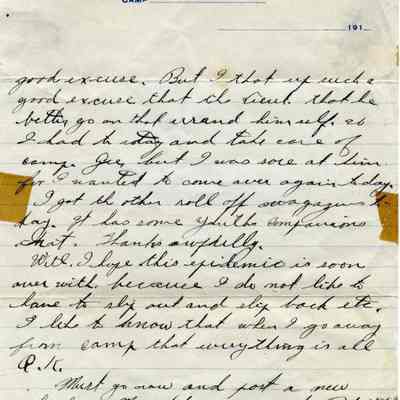 CAMP
191
good excuse. But I that up such a
good excuse that the Lieut. that he
betty go on that errand himself. so
I had to stay and take care of
camp. Gee, but I was sore at him
for I wanted to come over again today.
I got the other roll off magazines to-
day. It has some Youths Companions
in it. Thanks awfully.
Well I hope this epidemic is soon
over with because I do not like to
have to slip out and slip back etc.
I like to know that when I go away
from camp that everything is all
O.K.
Must go now and post a new